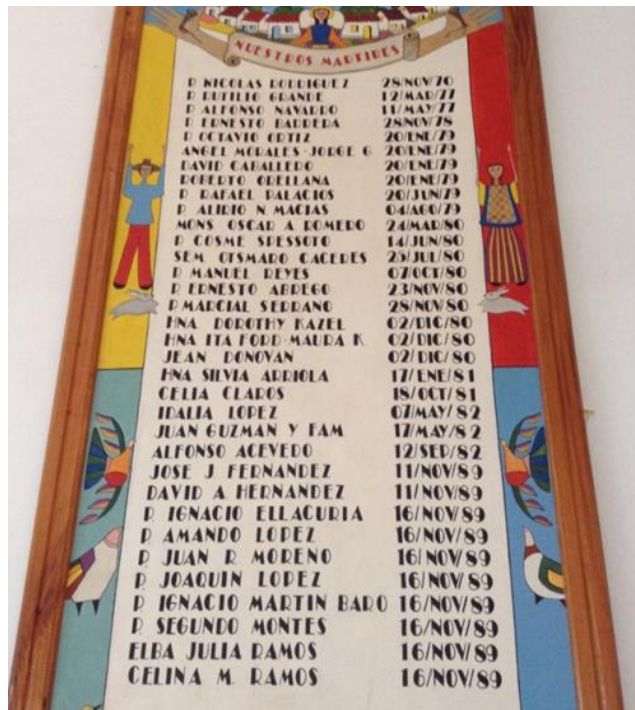 NUESTROS MARTIRES
P. NICOLAS RODRIGUEZ 28/NOV/70
P. RUTILIO GRANDE 12/MAR/77
P. ALFONSO NAVARRO 11/MAY/77
P. ERNESTO BARRERA 28/NOV/78
P. OCTAVIO ORTIZ 20/ENE/79
ANGEL MORALES-JORGE G 20/ENE/79
DAVID CABALLERO 20/ENE/79
ROBERTO ORELLANA 20/ENE/79
P. RAFAEL PALACIOS 20/JUN/79
P. ALIRIO N. MACIAS 04/AGO/79
MONS OSCAR A ROMERO 24/MAR/80
P. COSME SPESSOTO 14/JUN/80
SEM. OTSMARO CACERES 25/JUL/80
P. MANUEL REYES 07/OCT/80
P. ERNESTO ABREGO 23/NOV/80
P. MARCIAL SERRANO 28/NOV/80
HNA DOROTHY KAZEL 02/DIC/80
HNA ITA FORD-MAURA K. 02/DIC/80
JEAN DONOVAN 02/DIC/80
HNA SILVIA ARRIOLA 17/ENE/81
CELIA CLAROS 18/OCT/81
IDALIA LOPEZ 07/MAY/82
JUAN GUZMAN Y FAM 17/MAY/82
ALFONSO ACEVEDO 12/SEP/82
JOSE J FERNANDEZ 11/NOV/89
DAVID A. HERNANDEZ 11/NOV/89
P. IGNACIO ELLACURIA 16/NOV/89
P. AMANDO LOPEZ 16/NOV/89
P. JUAN R. MORENO 16/NOV/89
P. JOAQUIN LOPEZ 16/NOV/89
P. IGNACIO MARTIN BARO 16/NOV/89
P. SEGUNDO MONTES 16/NOV/89
ELBA JULIA RAMOS 16/NOV/89
CELINA M. RAMOS 16/NOV/89